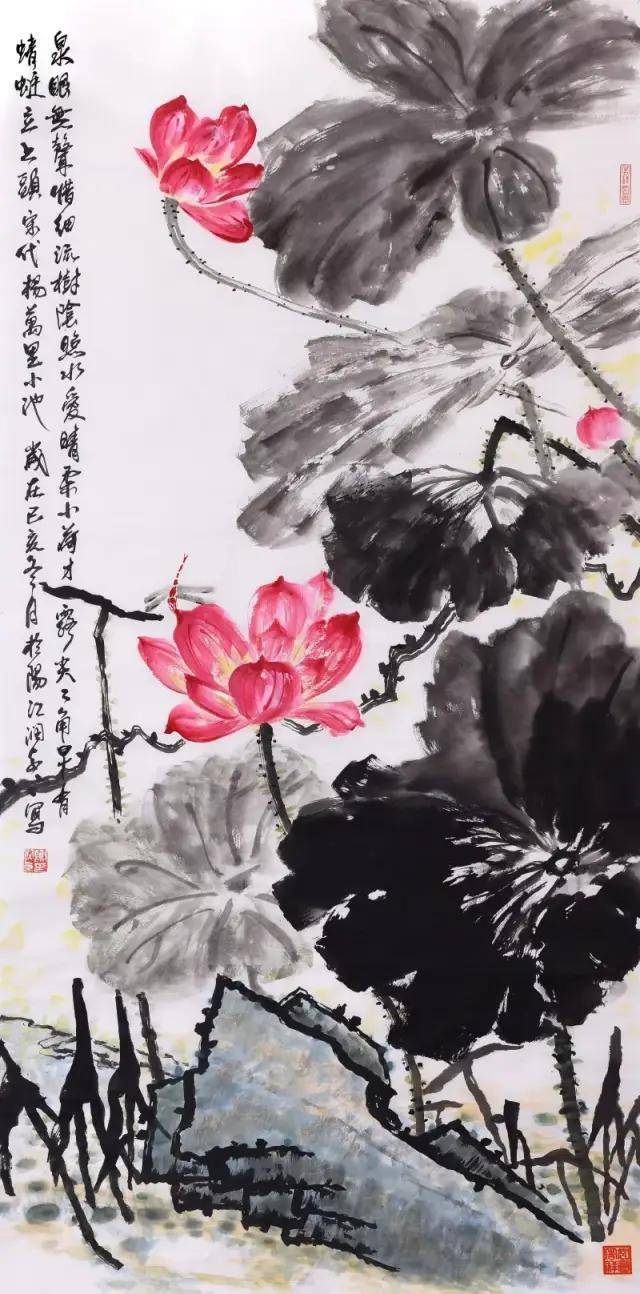 泉眼無聲惜細流樹陰照水愛晴柔小荷才露尖〻角早有
蜻蜓立上頭宋代楊萬里小池 歲在己亥冬月於陽江潤寫